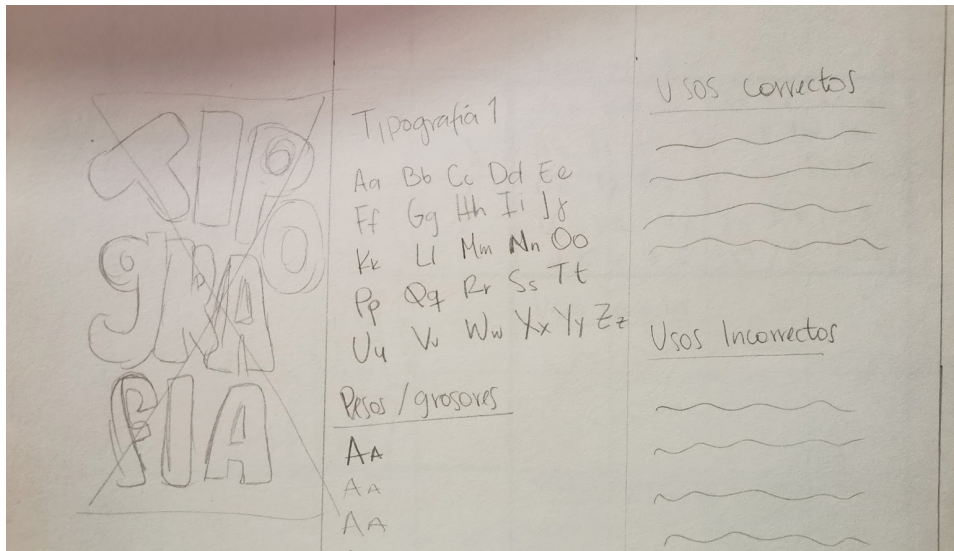 TIPO
GRA
FIA
Tipografía 1
Aa Bb Cc Dd Ee
Ff Gg Hh Ii Jj
Kk Ll Mm Nn Oo
Pp Qq Rr Ss Tt
Uu Vv Ww Xx Yy Zz
Pesos / grosores
AA
AA
AA
Usos correctos
Usos Incorrectos